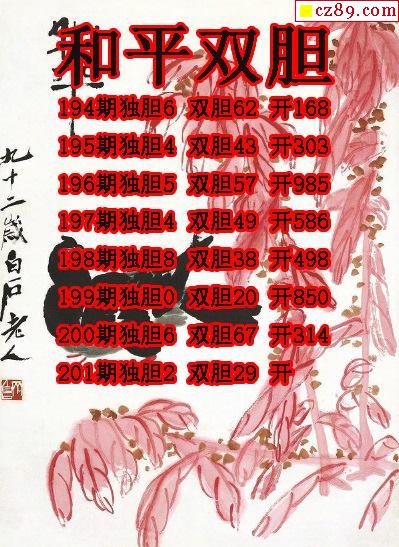 cz89.com
和平双胆
194期独胆6 双胆62 开168
195期独胆4 双胆43 开303
196期独胆5 双胆57 开985
197期独胆4 双胆49 开586
198期独胆8 双胆38 开498
199期独胆0 双胆20 开850
200期独胆6 双胆67 开314
201期独胆2 双胆29 开
九十二歲白石老人